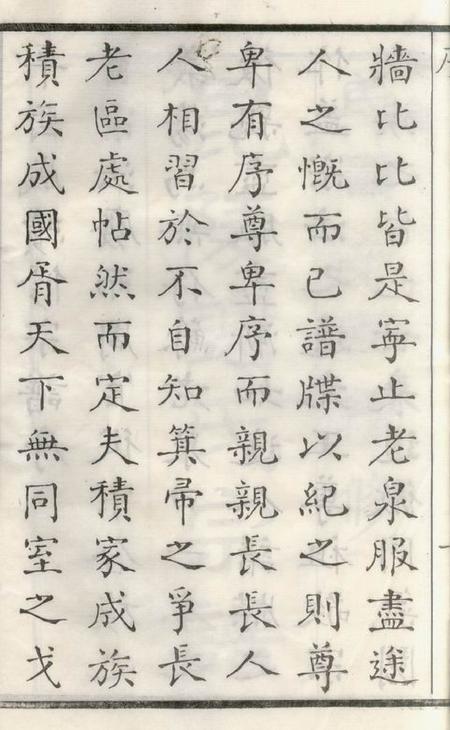 牆比比皆是寧止老泉服盡途
人之慨而已譜牒以紀之則尊
卑有序尊卑序而親親長長人
人相習於不自知箕帚之爭長
老區處帖然而定夫積家成族
積族成國胥天下無同室之戈